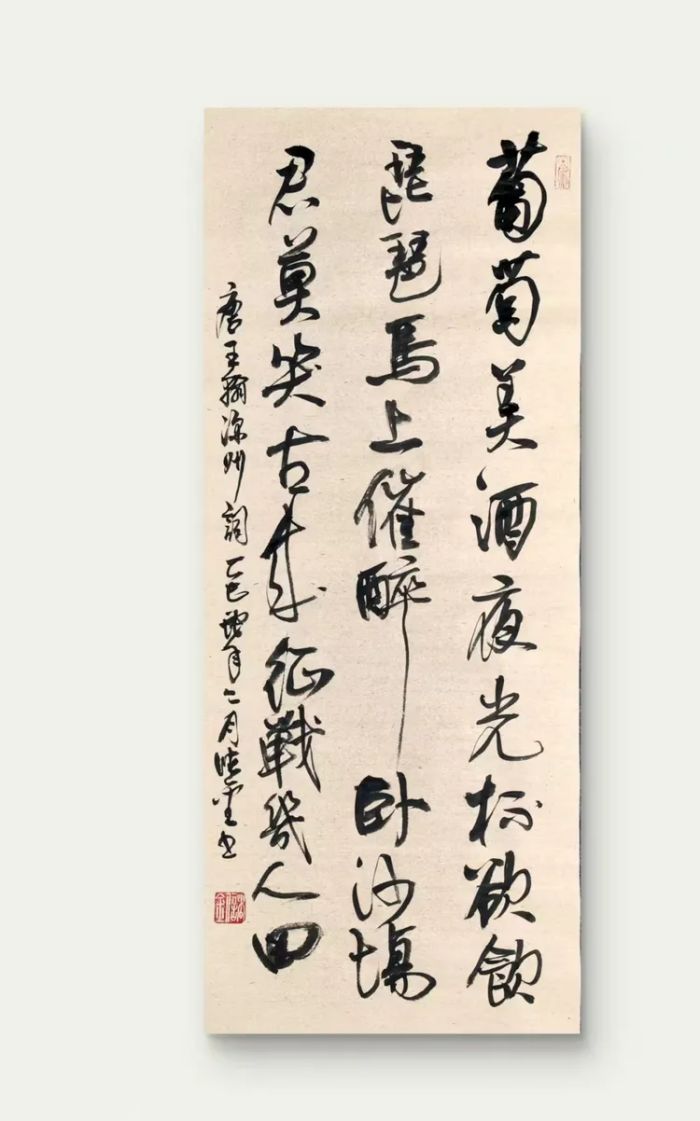 葡萄美酒夜光杯欲飲
琵琶馬上催醉卧沙場
君莫笑古來征戰幾人回
唐王翰凉州詞乙巳蛇年二月書